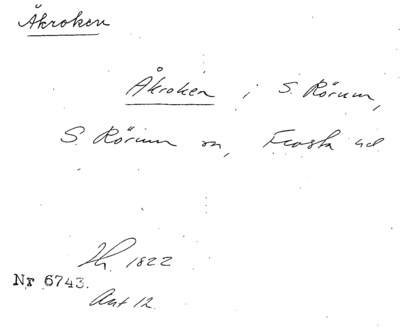 Åkroken
Åkroken i S. Rörum,
S. Rörum sn, Frosta hd
Hr. 1822
Nr 6743.
Akt 12.